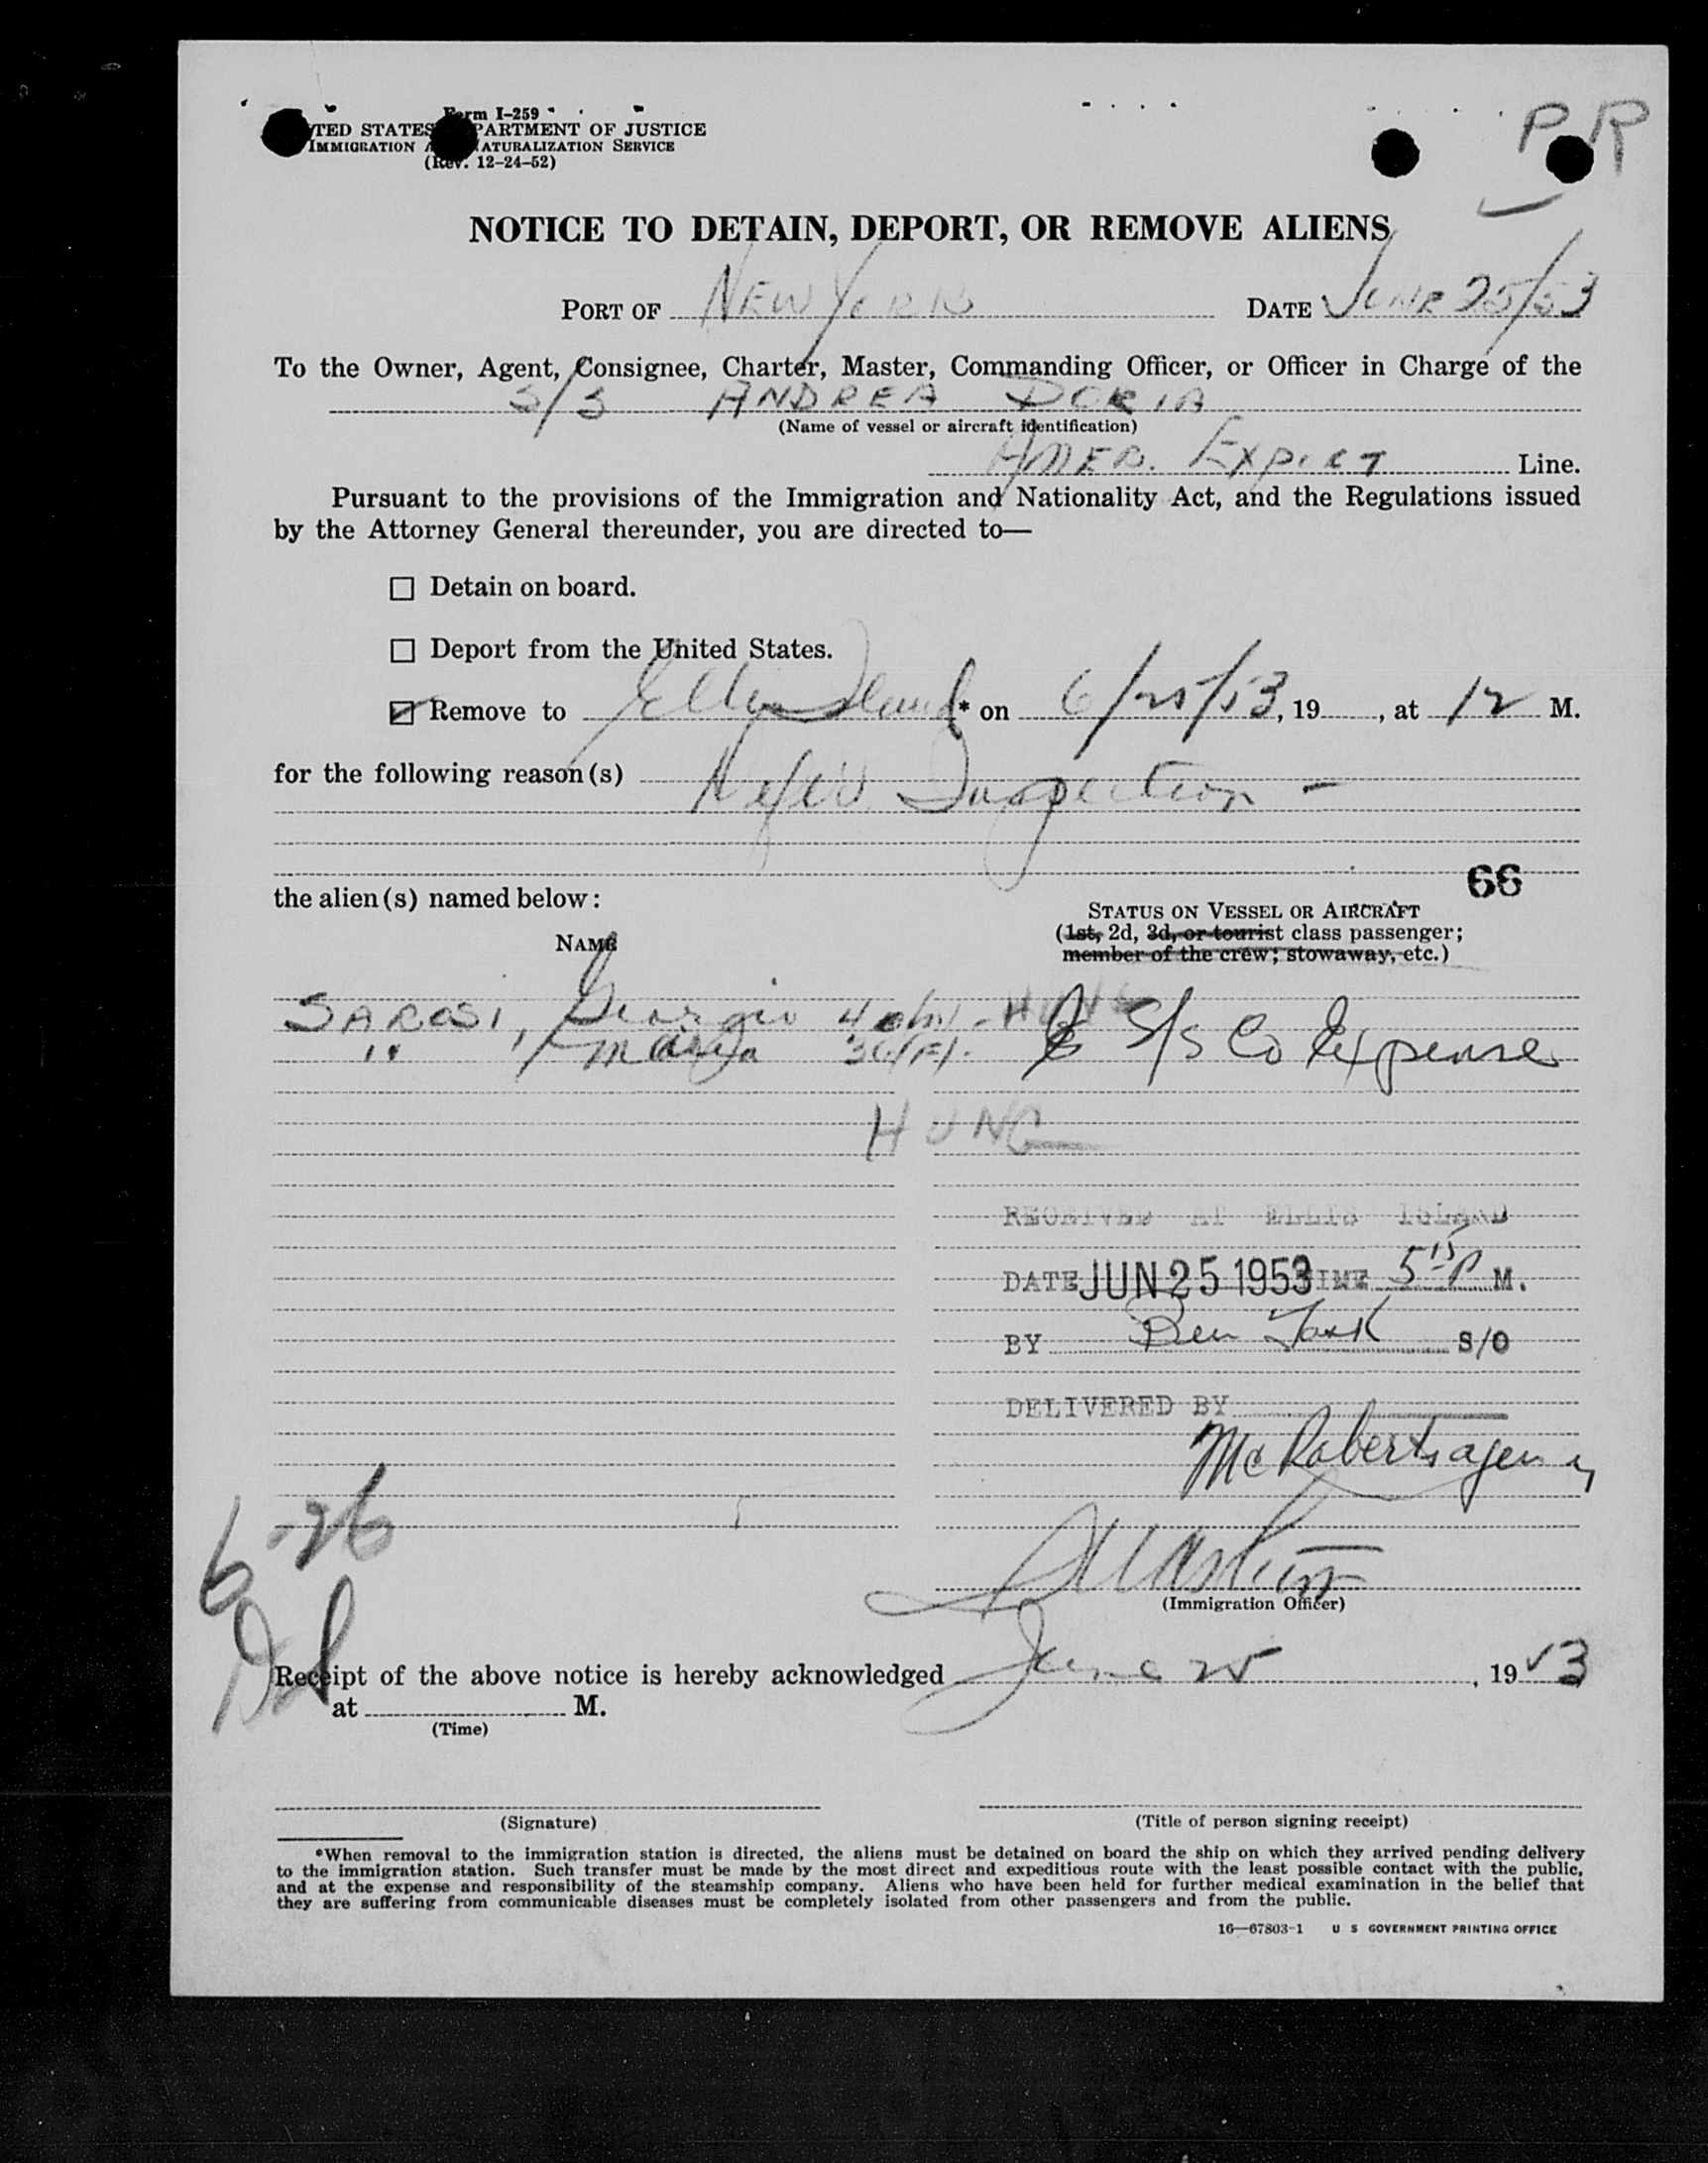 PR
Form I-259
TED STATES PARTMENT OF JUSTICE
IMMIGRATION A ATURALIZATION SERVICE
(Rev. 12-24-52)
NOTICE TO DETAIN, DEPORT, OR REMOVE ALIENS
PORT OF NEW YORK DATE JUNE 25/53
To the Owner, Agent, Consignee, Charter, Master, Commanding Officer, or Officer in Charge of the
S/S ANDREA DORIA
(Name of vessel or aircraft identification)
AMER. EXPORT Line.
Pursuant to the provisions of the Immigration and Nationality Act, and the Regulations issued
by the Attorney General thereunder, you are directed to—
☐ Detain on board.
☐ Deport from the United States.
☑ Remove to Ellis Island* on 6/25/53, 19 , at 12 M.
for the following reason(s)
Inspection -
66
the alien(s) named below:
STATUS ON VESSEL OR AIRCRAFT
(1st, 2d, 3d, or tourist class passenger;
member of the crew; stowaway, etc.)
NAME
SAROSI, Giorgio - HUNG S/S Co Expense
" Maria
HUNG
RECEIVED AT ELLIS ISLAND
DATE JUN 25 1953 TIME 5 15 P M.
BY Ben S/O
DELIVERED BY
McRoberts agency
(Immigration Officer)
6-26
Receipt of the above notice is hereby acknowledged June 25, 1953
at M.
(Time)
(Signature) (Title of person signing receipt)
*When removal to the immigration station is directed, the aliens must be detained on board the ship on which they arrived pending delivery
to the immigration station. Such transfer must be made by the most direct and expeditious route with the least possible contact with the public,
and at the expense and responsibility of the steamship company. Aliens who have been held for further medical examination in the belief that
they are suffering from communicable diseases must be completely isolated from other passengers and from the public.
16—67803-1 U S GOVERNMENT PRINTING OFFICE